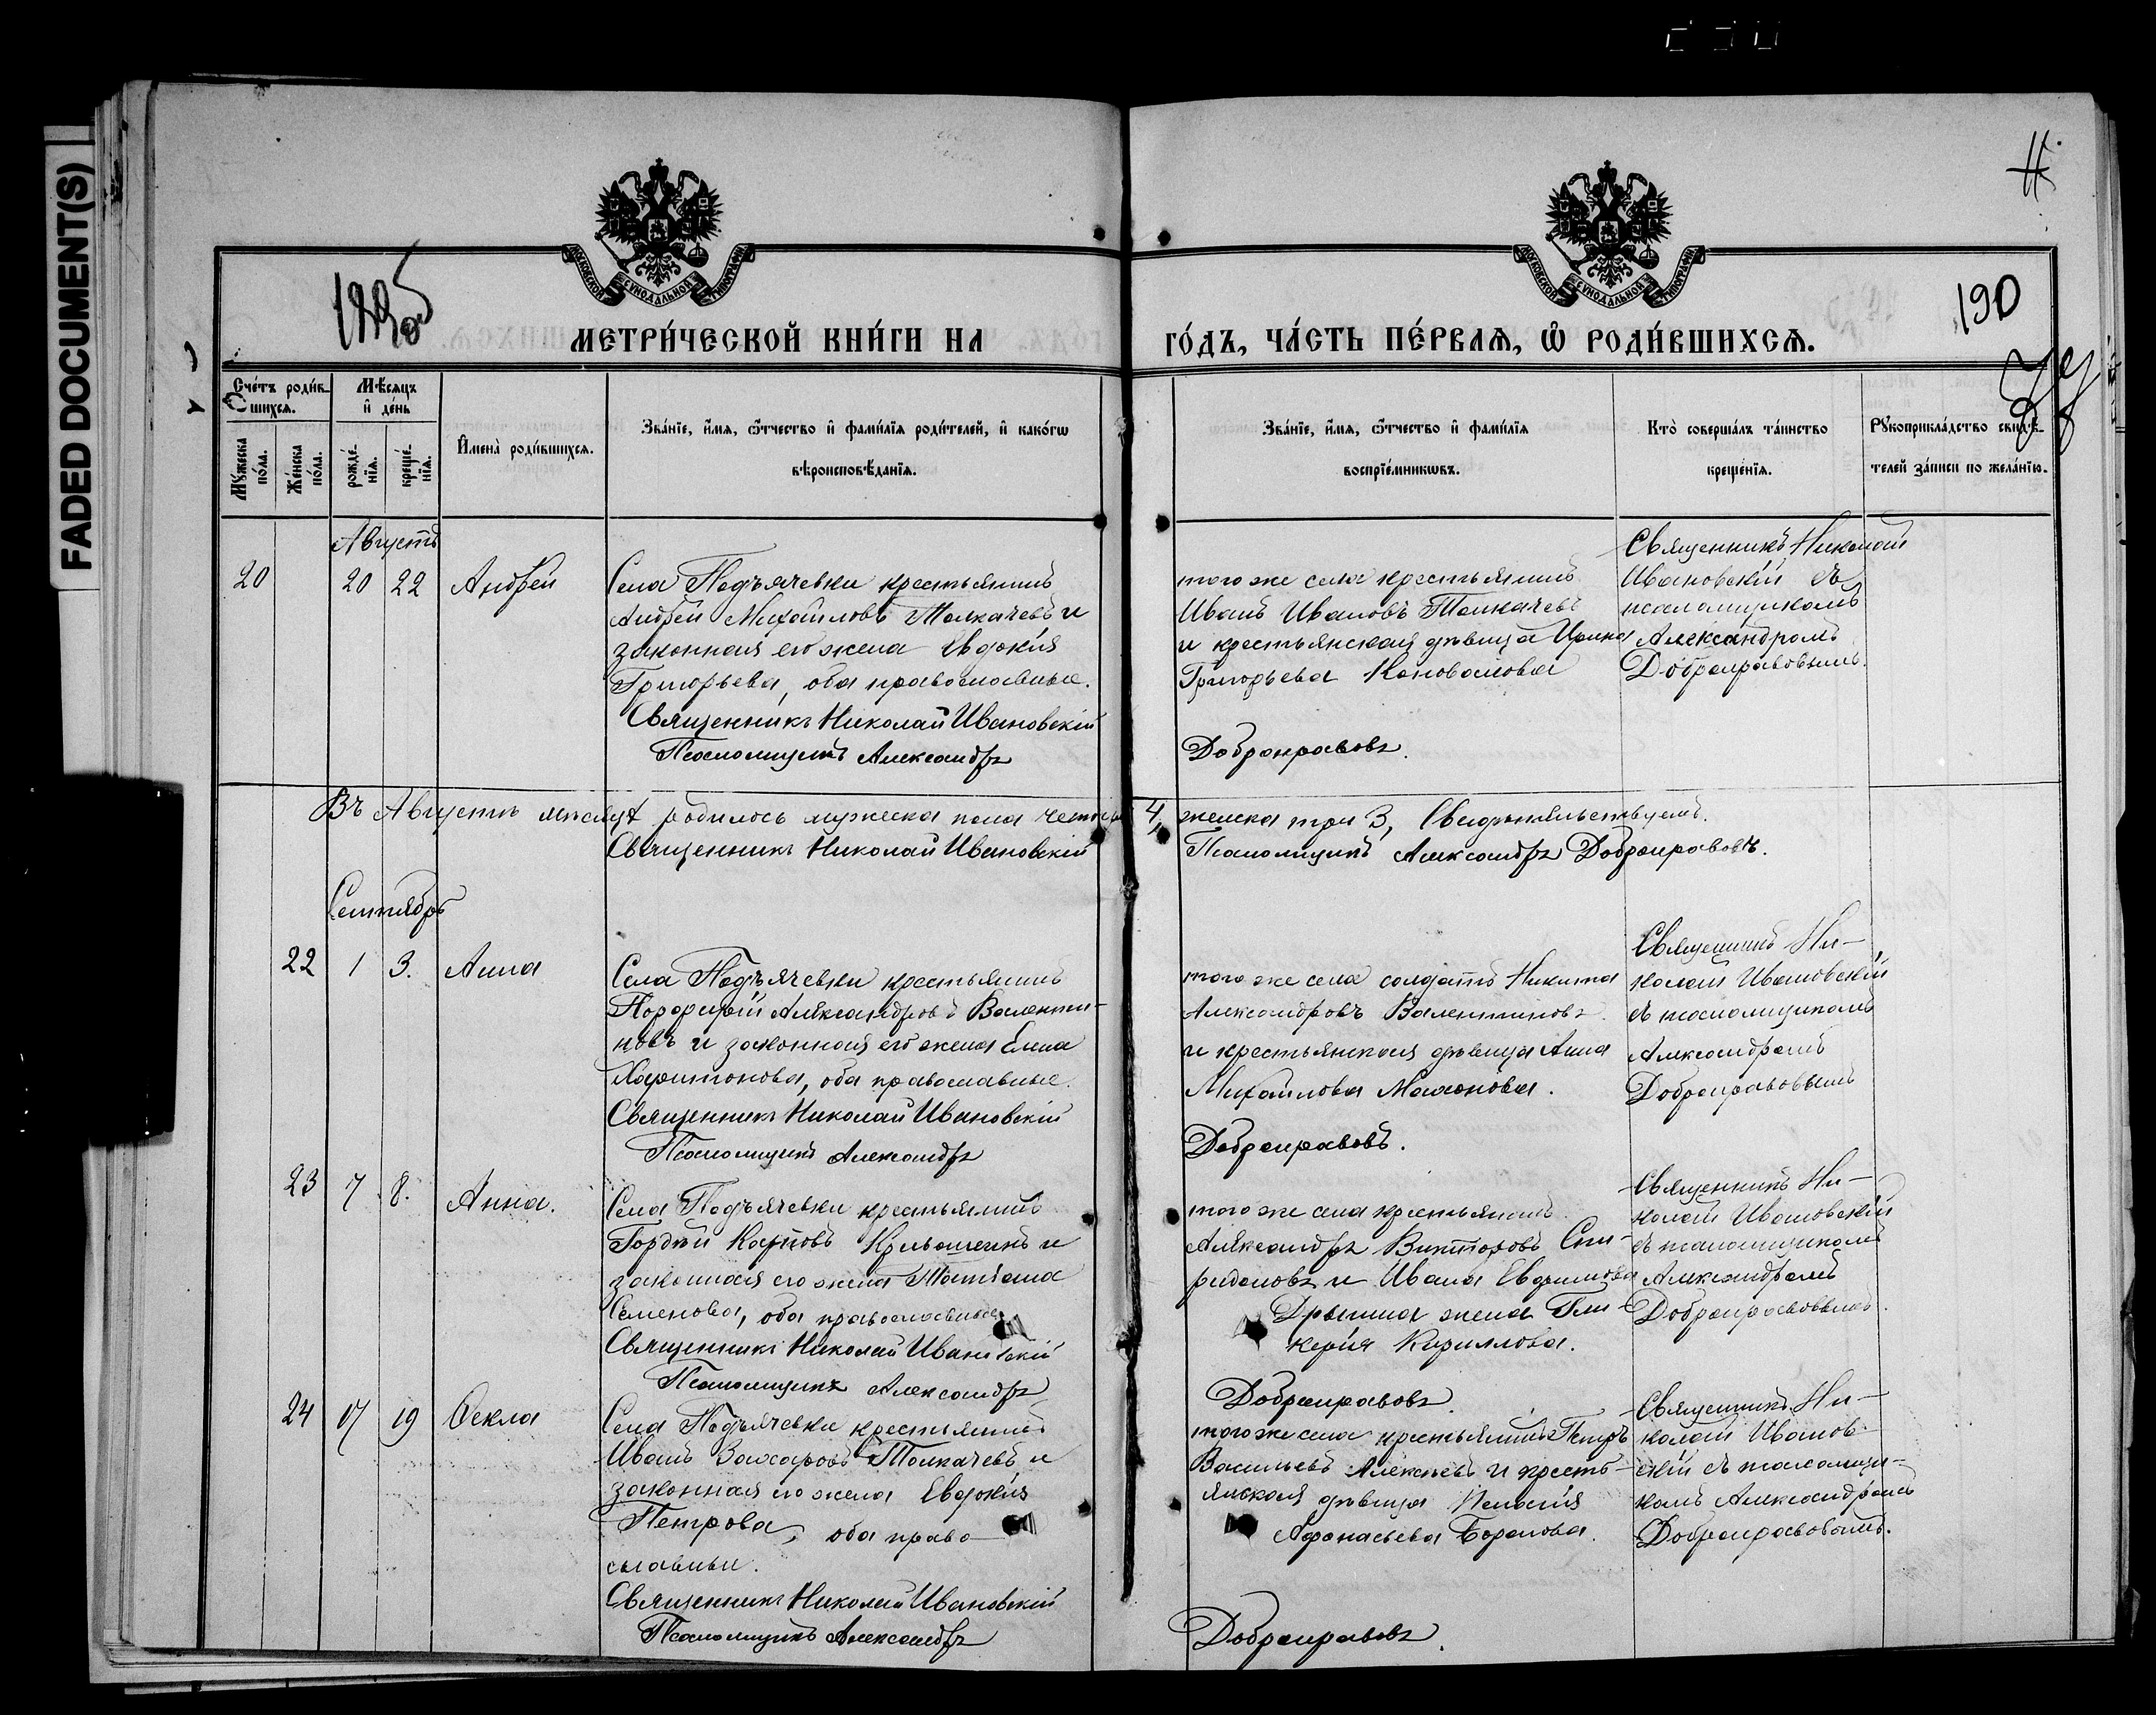 FADED DOCUMENT(S)
МОСКОВСКОЙ СѴНОДАЛЬНОЙ ТИПОГРАФІИ
МОСКОВСКОЙ СѴНОДАЛЬНОЙ ТИПОГРАФІИ
190
МЕТРИ́ЧЕСКОЙ КНИ́ГИ НА
ГО́ДЪ, ЧА́СТЬ ПЕ́РВАѦ, Ѽ РОДИ́ВШИХСѦ.
Сче́тъ роди́в-
шихся.
Мꙋ́жеска по́ла.
Же́нска по́ла.
Мѣ́сяцъ и҆ де́нь
рожде́-нїя.
креще́-нїя.
И҆мена̀ роди́вшихся.
Зва́нїе, и҆́мя, ѻ҆́тчество и҆ фами́лїя роди́телей, и҆ како́гѡ
вѣроисповѣ́данїя.
Зва́нїе, и҆́мя, ѻ҆́тчество и҆ фами́лїя
воспрїе́мникѡвъ.
Кто̀ соверша́лъ та́инство
креще́нїя.
Рꙋкоприкла́дство свидѣ́-
телей за́писи по жела́нїю.
Августъ
20 20 22 Андрей
Села Подъячевки крестьянинъ
Андрей Михайловъ Толкачевъ и
законная его жена Евдокія
Григорьева, оба православные.
Священникъ Николай Ивановскій
Псаломщикъ Александръ
того же села крестьянинъ
Иванъ Ивановъ Толкачевъ
и крестьянская дѣвица Ирина
Григорьева Коновалова
Добронравовъ.
Священникъ Николай
Ивановскій съ
псаломщикомъ
Александромъ
Добронравовымъ.
Въ Августѣ мѣсяцѣ родилось мужеска пола четыре 4, женска три 3, Свидѣтельствуемъ.
Священникъ Николай Ивановскій Псаломщикъ Александръ Добронравовъ.
Сентябрь
22 1 3. Анна
Села Подъячевки крестьянинъ
Порфирій Александровъ Валенти-
новъ и законная его жена Елена
Харитонова, оба православные.
Священникъ Николай Ивановскій
Псаломщикъ Александръ
того же села солдатъ Никита
Александровъ Валентиновъ
и крестьянская дѣвица Анна
Михайлова
Добронравовъ.
Священникъ Ни-
колай Ивановскій
съ псаломщикомъ
Александромъ
Добронравовымъ
23 7 8. Анна.
Села Подъячевки крестьянинъ
Гордѣй Карповъ и
законная его жена Татіана
Семенова, оба православные
Священникъ Николай Ивановскій
Псаломщикъ Александръ
того же села крестьянинъ
Александръ Викторовъ Спи-
ридоновъ и Ивана Евдокимова
жена Гли-
керія Кириллова.
Добронравовъ
Священникъ Ни-
колай Ивановскій
съ псаломщикомъ
Александромъ
Добронравовымъ.
24 17 19 Ѳекла
Села Подъячевки крестьянинъ
Иванъ Захаровъ Толкачевъ и
законная его жена Евдокія
Петрова, оба право-
славные.
Священникъ Николай Ивановскій
Псаломщикъ Александръ
того же села крестьянинъ Петръ
Васильевъ Алексѣевъ и кресть-
янская дѣвица Пелагія
Афанасьева
Добронравовъ.
Священникъ Ни-
колай Иванов-
скій съ псаломщи-
комъ Александромъ
Добронравовымъ.